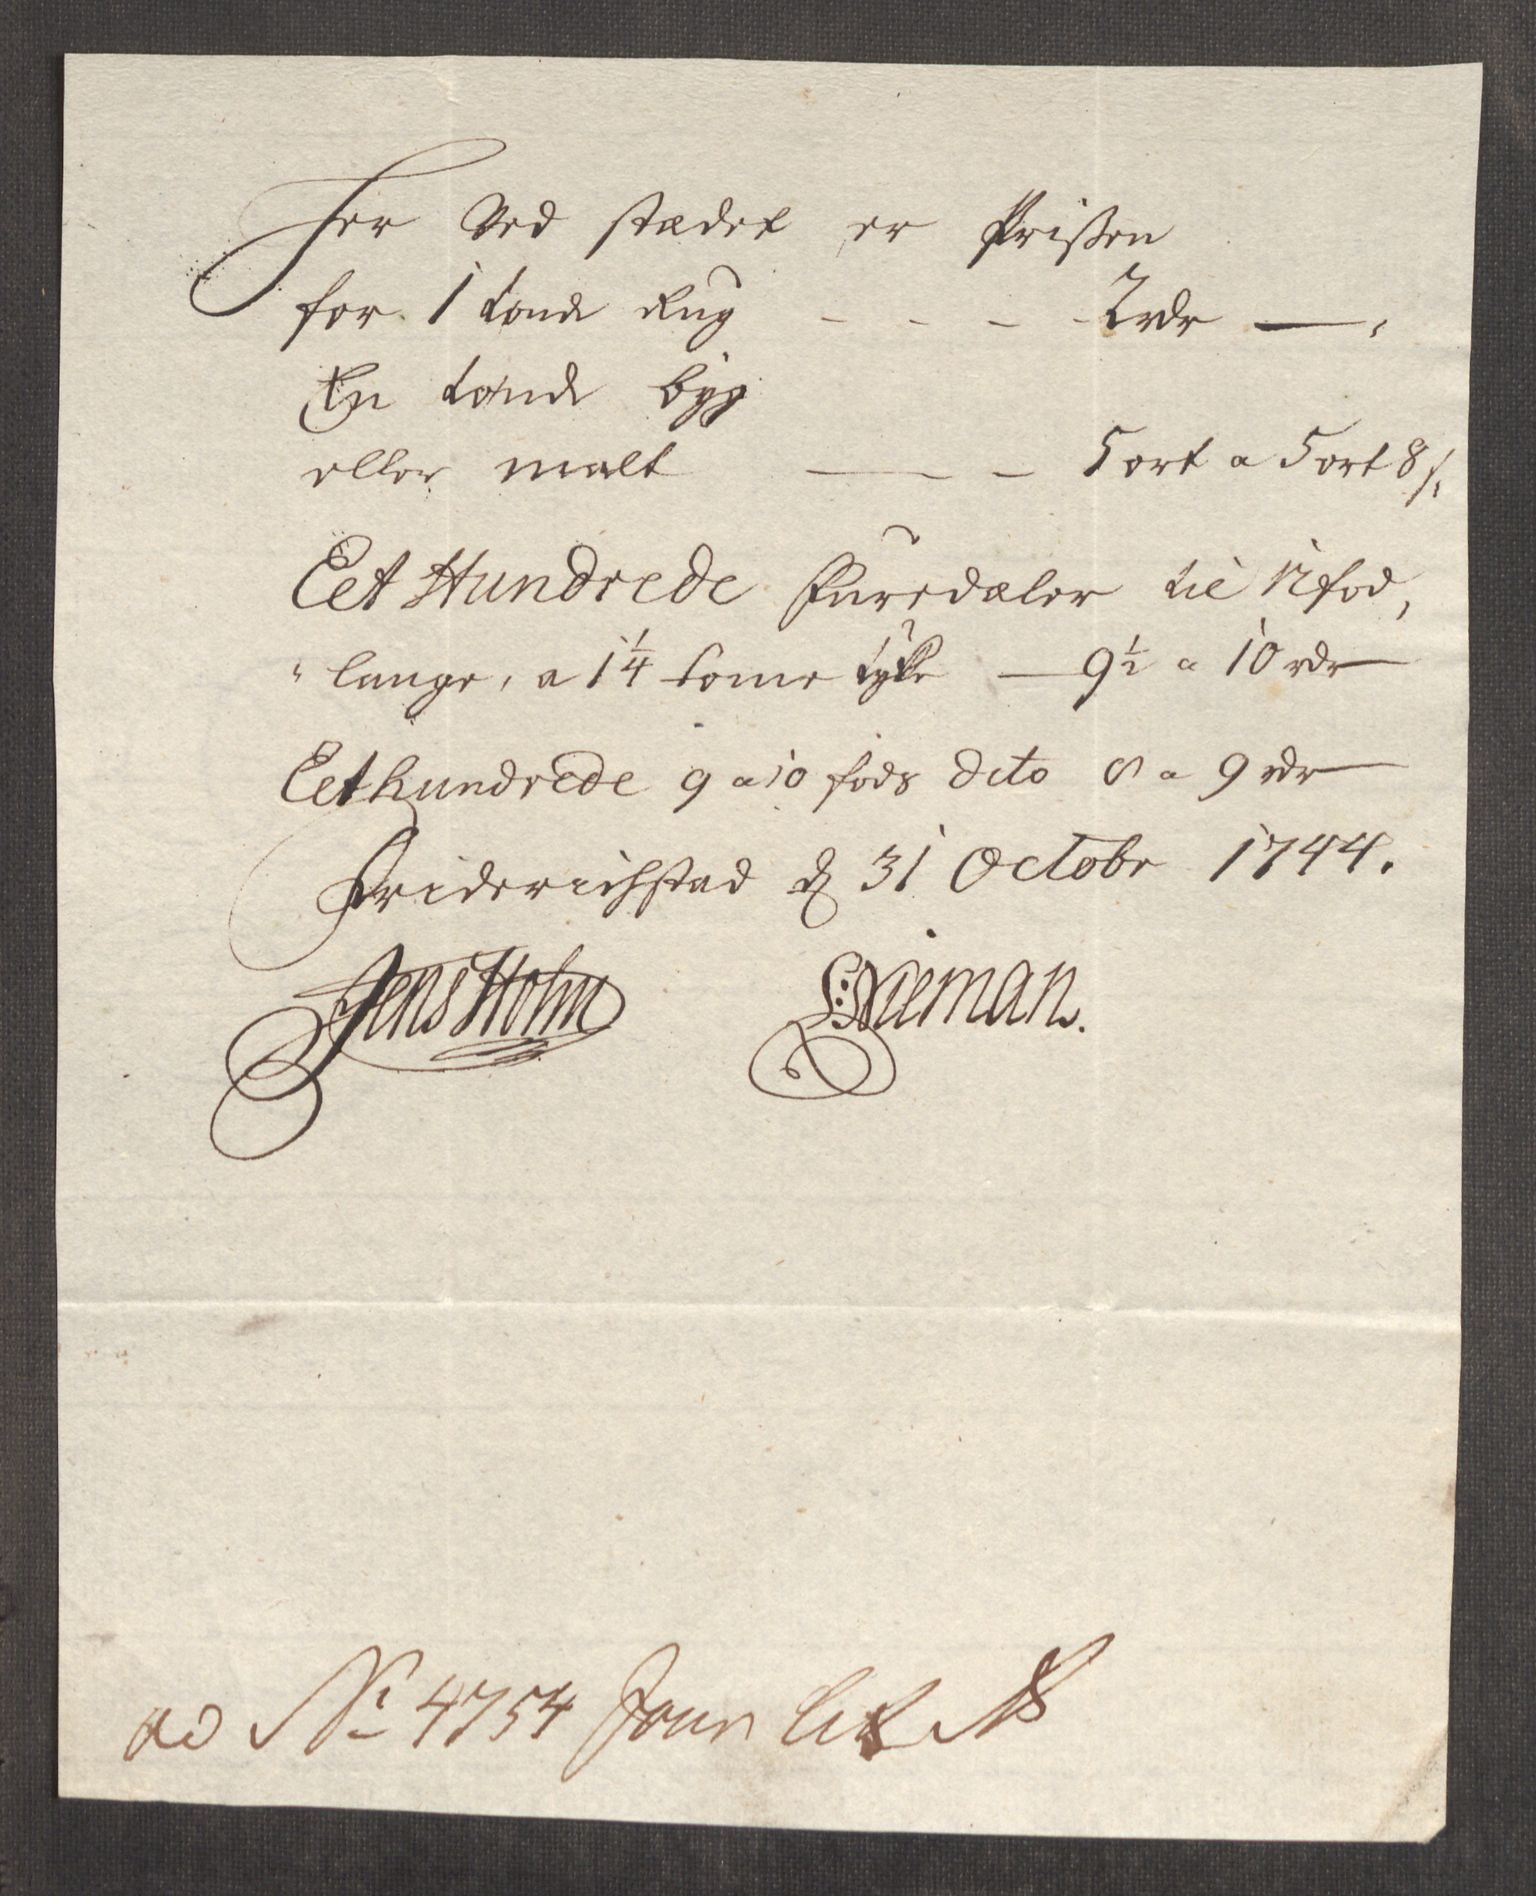 Her Ved stædet er Prissen
for 1 tønde Rug - - - - 2 rdr —
En tønde byg
eller malt — - - 5 ort a 5 ort 8 s.
Eet Hundrede Furedæler til 12 fod,
lange, a 1 1/4 tome tyke — 9 1/2 a 10 rdr
Eet hundrede 9 a 10 fods dito 8 a 9 rdr
Friderichstad d 31 Octobr 1744.
Jens Holm Nieman.
ad No 4754 Jour Lit